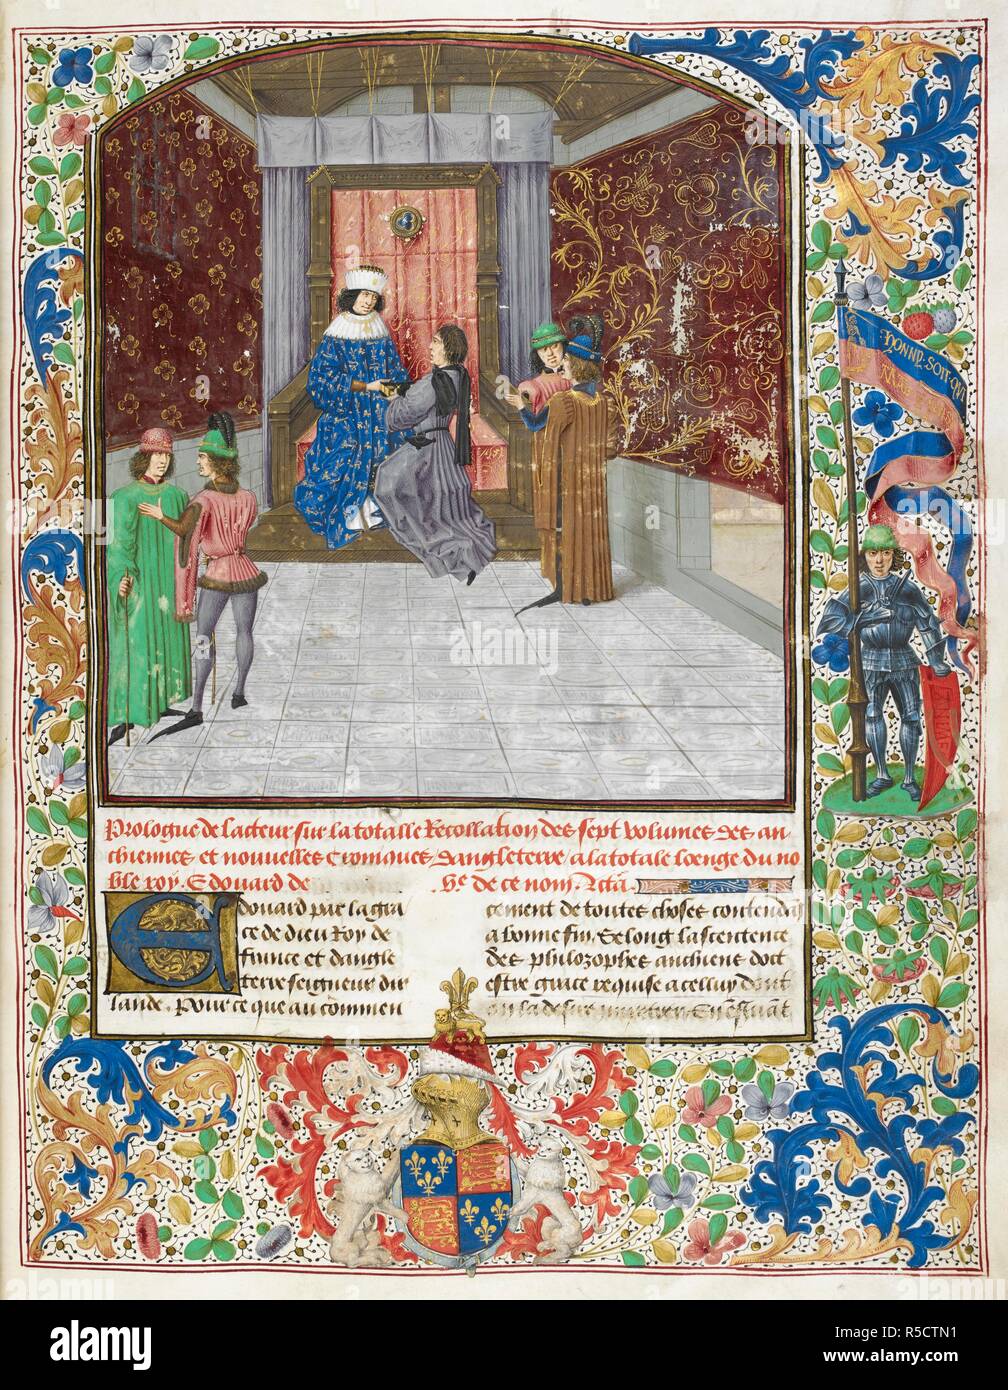 HONNY SOIT QUI
Prologue de lacteur sur la totalle Recollation des sept volumes des an-
chiennes et nouvelles Croniques dangleterre a la totale loenge du no
ble roy. Edouard de
.he de ce nom. Acta
Edouard par la gra
ce de dieu Roy de
france et dangle
terre seigneur dir
lande. Pour ce que au commen
cement de toutes choses contendās
a bonne fin. Selong la scentence
des philozophes anchiens doct
estre grace requise a celluy dont
alamy
a
alamy stock photo
R5CTN1
www.alamy.com